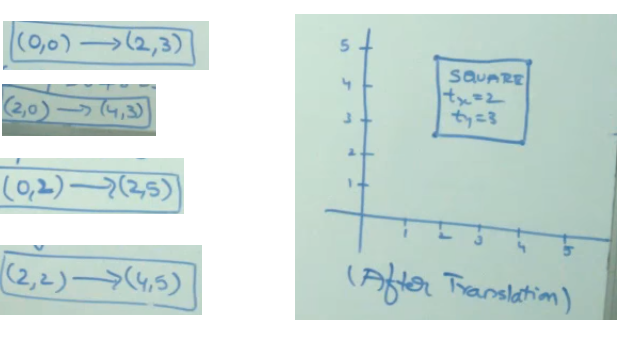 (0,0) → (2,3)
(2,0) → (4,3)
(0,2) → (2,5)
(2,2) → (4,5)
5
4
3
2
1
SQUARE
tx=2
ty=3
1 2 3 4 5
(After Translation)